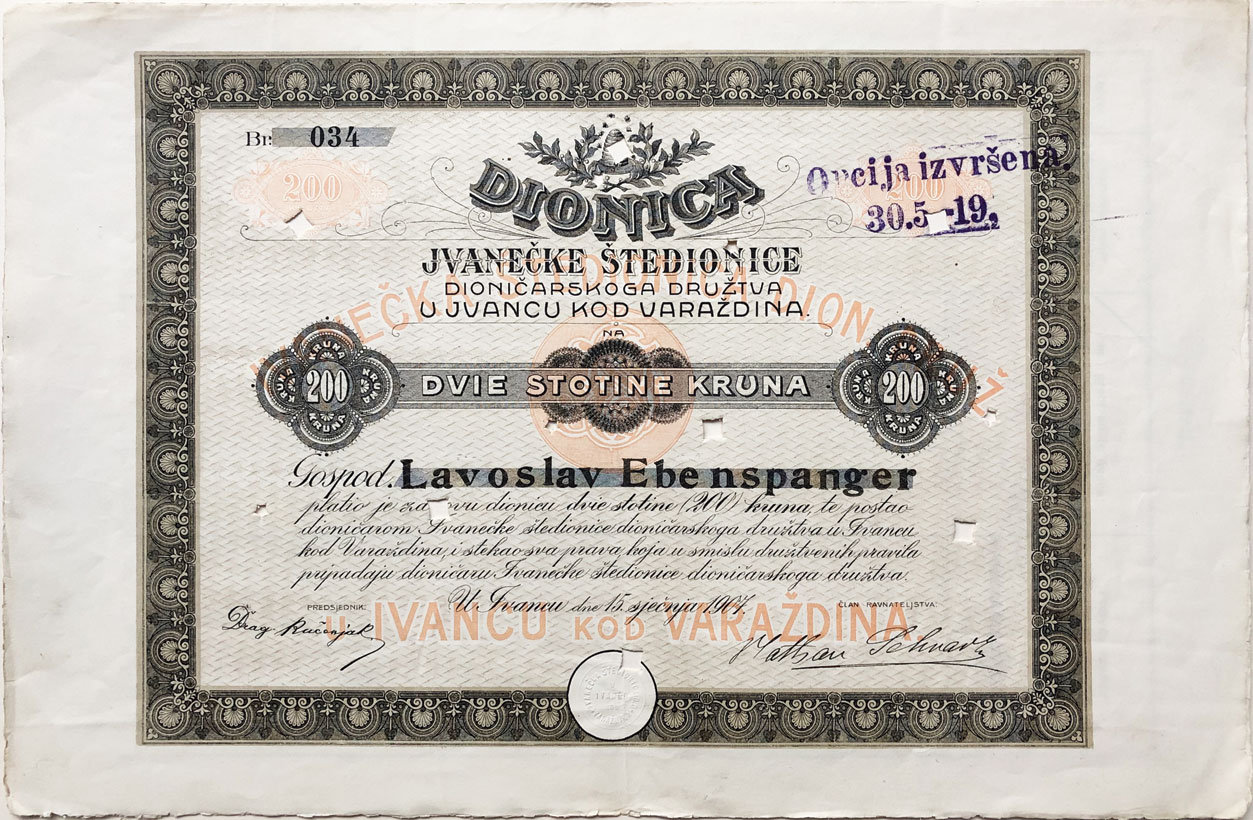 Br: 034
200
200
Opcija izvršena.
30.5 -19,
DIONICA
JVANEČKE ŠTEDIONICE
DIONIČARSKOGA DRUŽTVA
U JVANCU KOD VARAŽDINA.
NA
KRUNA
200
KRUNA
DVIE STOTINE KRUNA
KRUNA
200
KRUNA
Gospod. Lavoslav Ebenspanger
platio je za ovu dionicu dvie stotine (200) kruna, te postao
dioničarom Ivanečke štedionice dioničarskoga družtva u Ivancu
kod Varaždina, i stekao sva prava, koja u smislu družtvenih pravila
pripadaju dioničaru Ivanečke štedionice dioničarskoga družtva.
U Ivancu dne 15. sječnja 1907.
PREDSJEDNIK:
ČLAN RAVNATELJSTVA:
U IVANCU KOD VARAŽDINA.